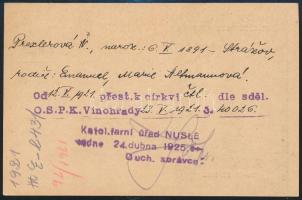 Prexlerová naroz.: 6. V. 1891 - Strážov,
rodiče: Emanuel, Marie Altmannová.
Od 12. V. 1921 přest. k církvi čsl. dle sděl.
O.S.P.K. Vinohrady V. 1921 40026.
Katol. farní úřad NUSLE
dne 24. dubna 1925.
Duch. správce:
1921
94/1921